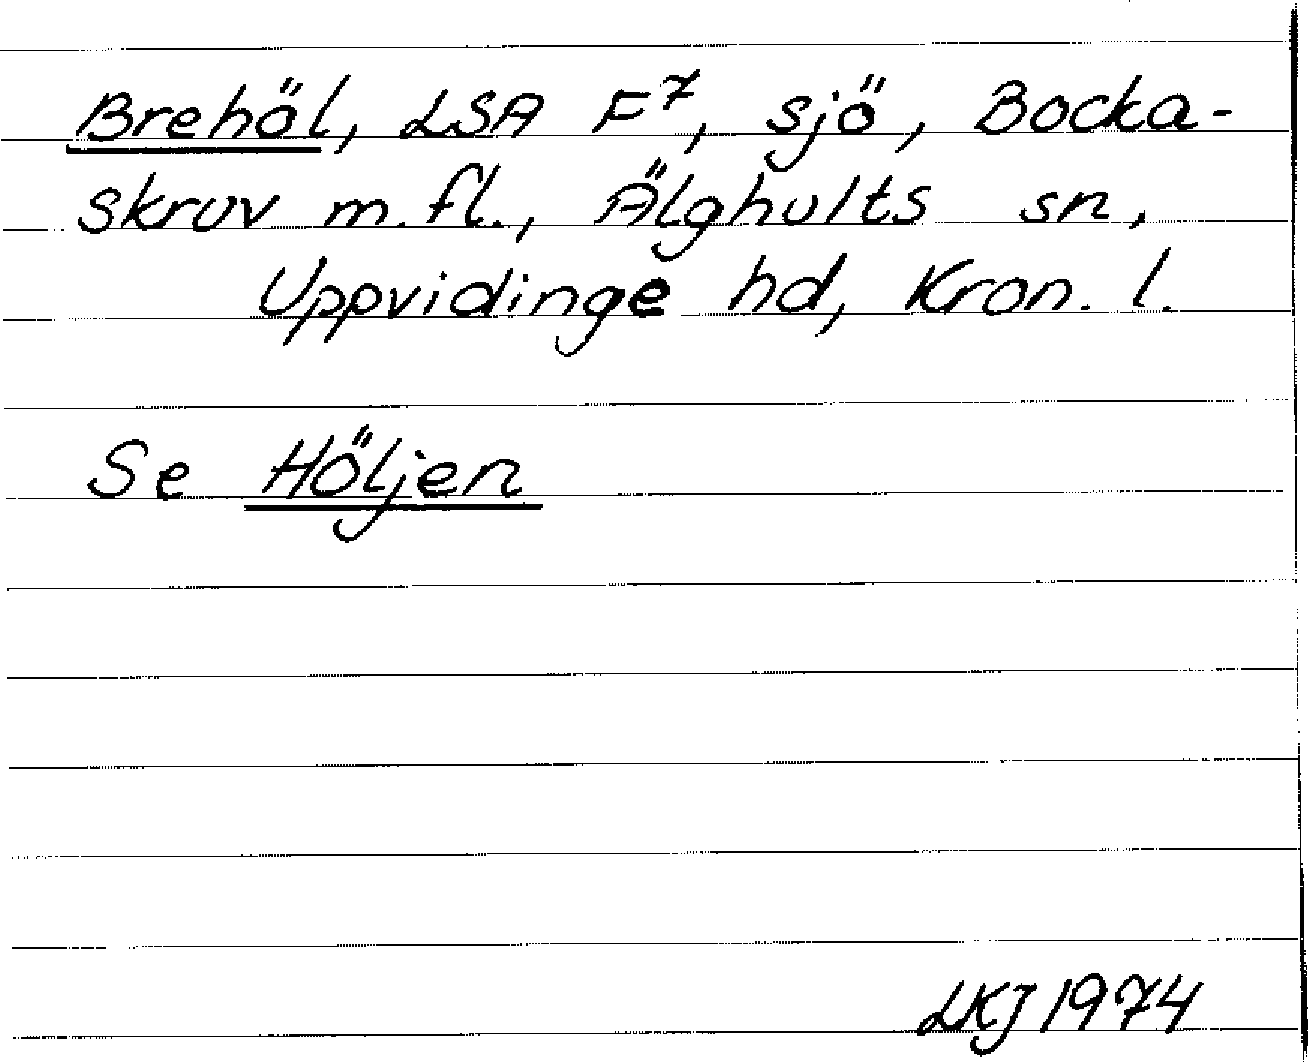 Brehöl, LSA F⁷, sjö, Bocka-
skruv m.fl., Älghults sn,
Uppvidinge hd, Kron. l.
Se Höljen
LKJ 1974